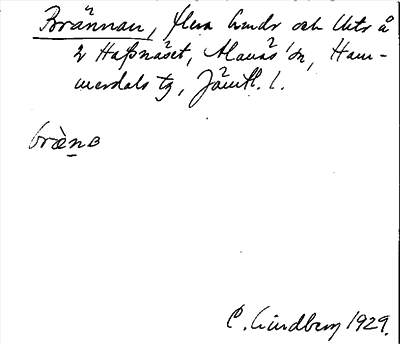 Brännan, flera lindor och slåtr å
2 Hafsnäset, Alanäs' sn, Ham-
merdals tg, Jämtl. l.
bræ̀nɒ
C. Lindberg 1929.